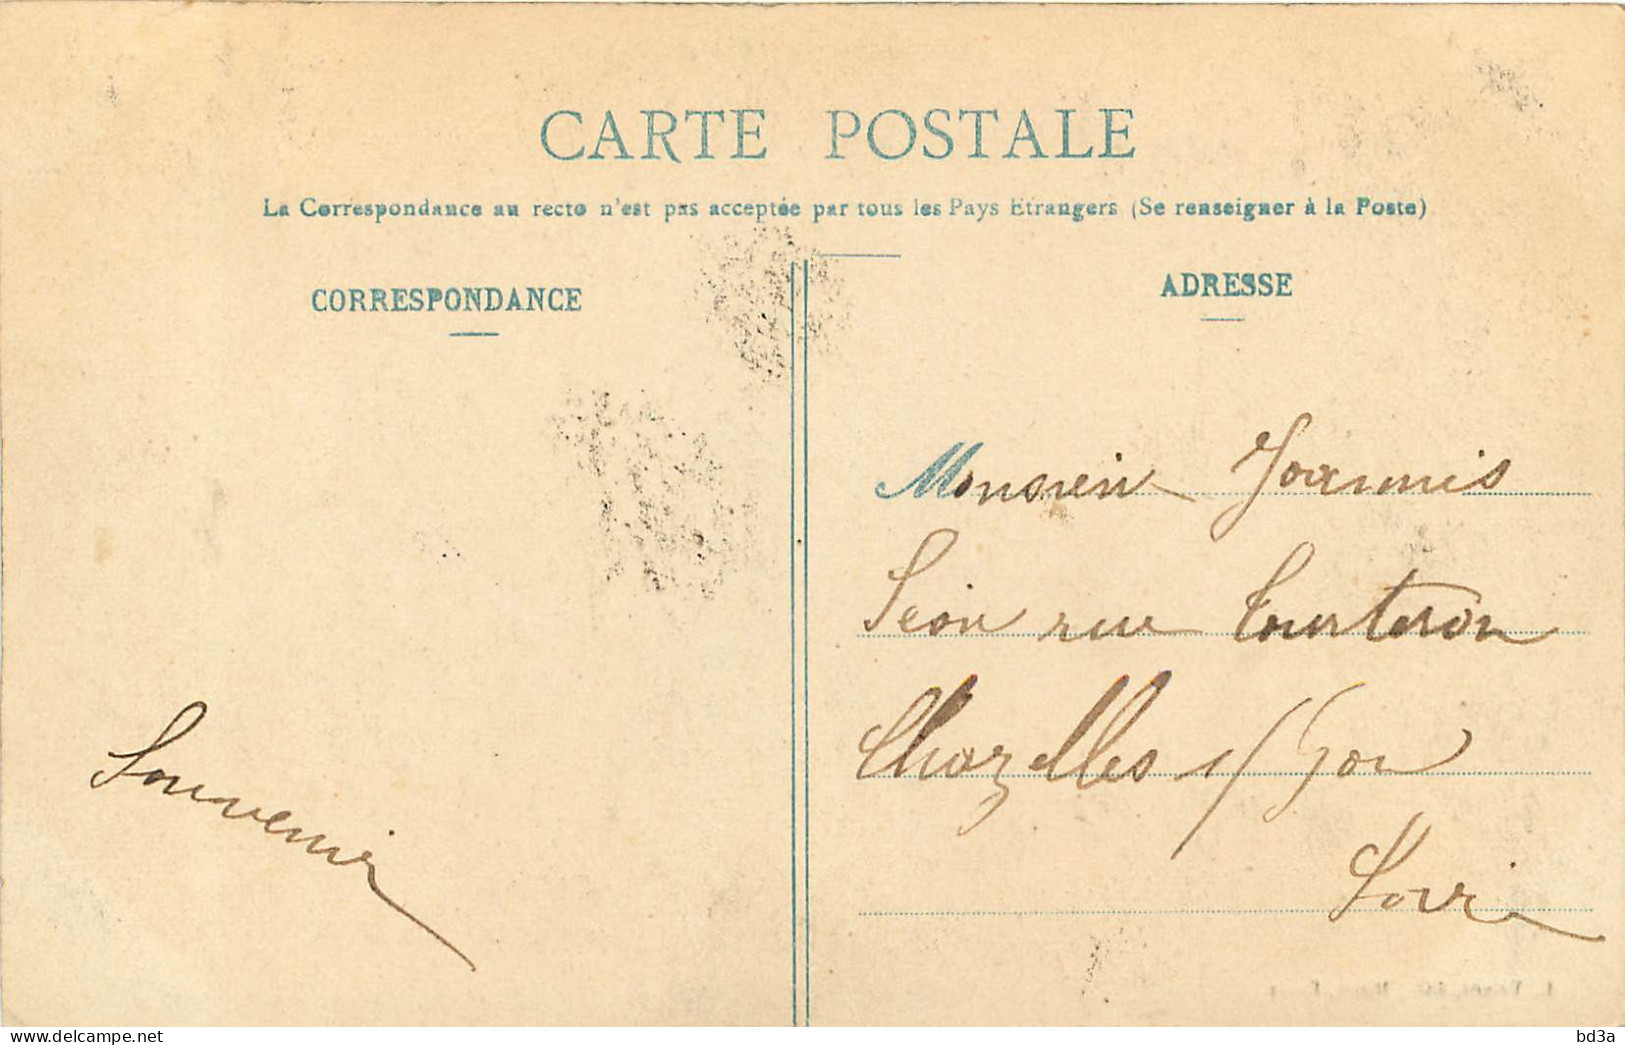 CARTE POSTALE
La Correspondance au recto n'est pas acceptée par tous les Pays Etrangers (Se renseigner à la Poste)
CORRESPONDANCE
ADRESSE
Monsieur Joannis
rue
Chazelles s/ Lyon
Loire
Souvenir
bd3a